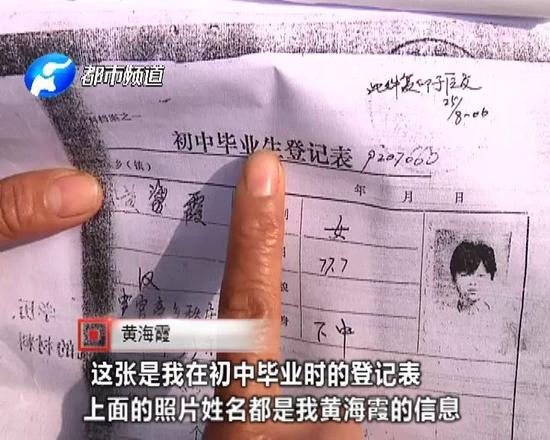 都市频道
25/8-06
初中毕业生登记表 9207060
乡(镇)
年 月 日
黄海霞
女
77.7
汉
下中
黄海霞
这张是我在初中毕业时的登记表
上面的照片姓名都是我黄海霞的信息